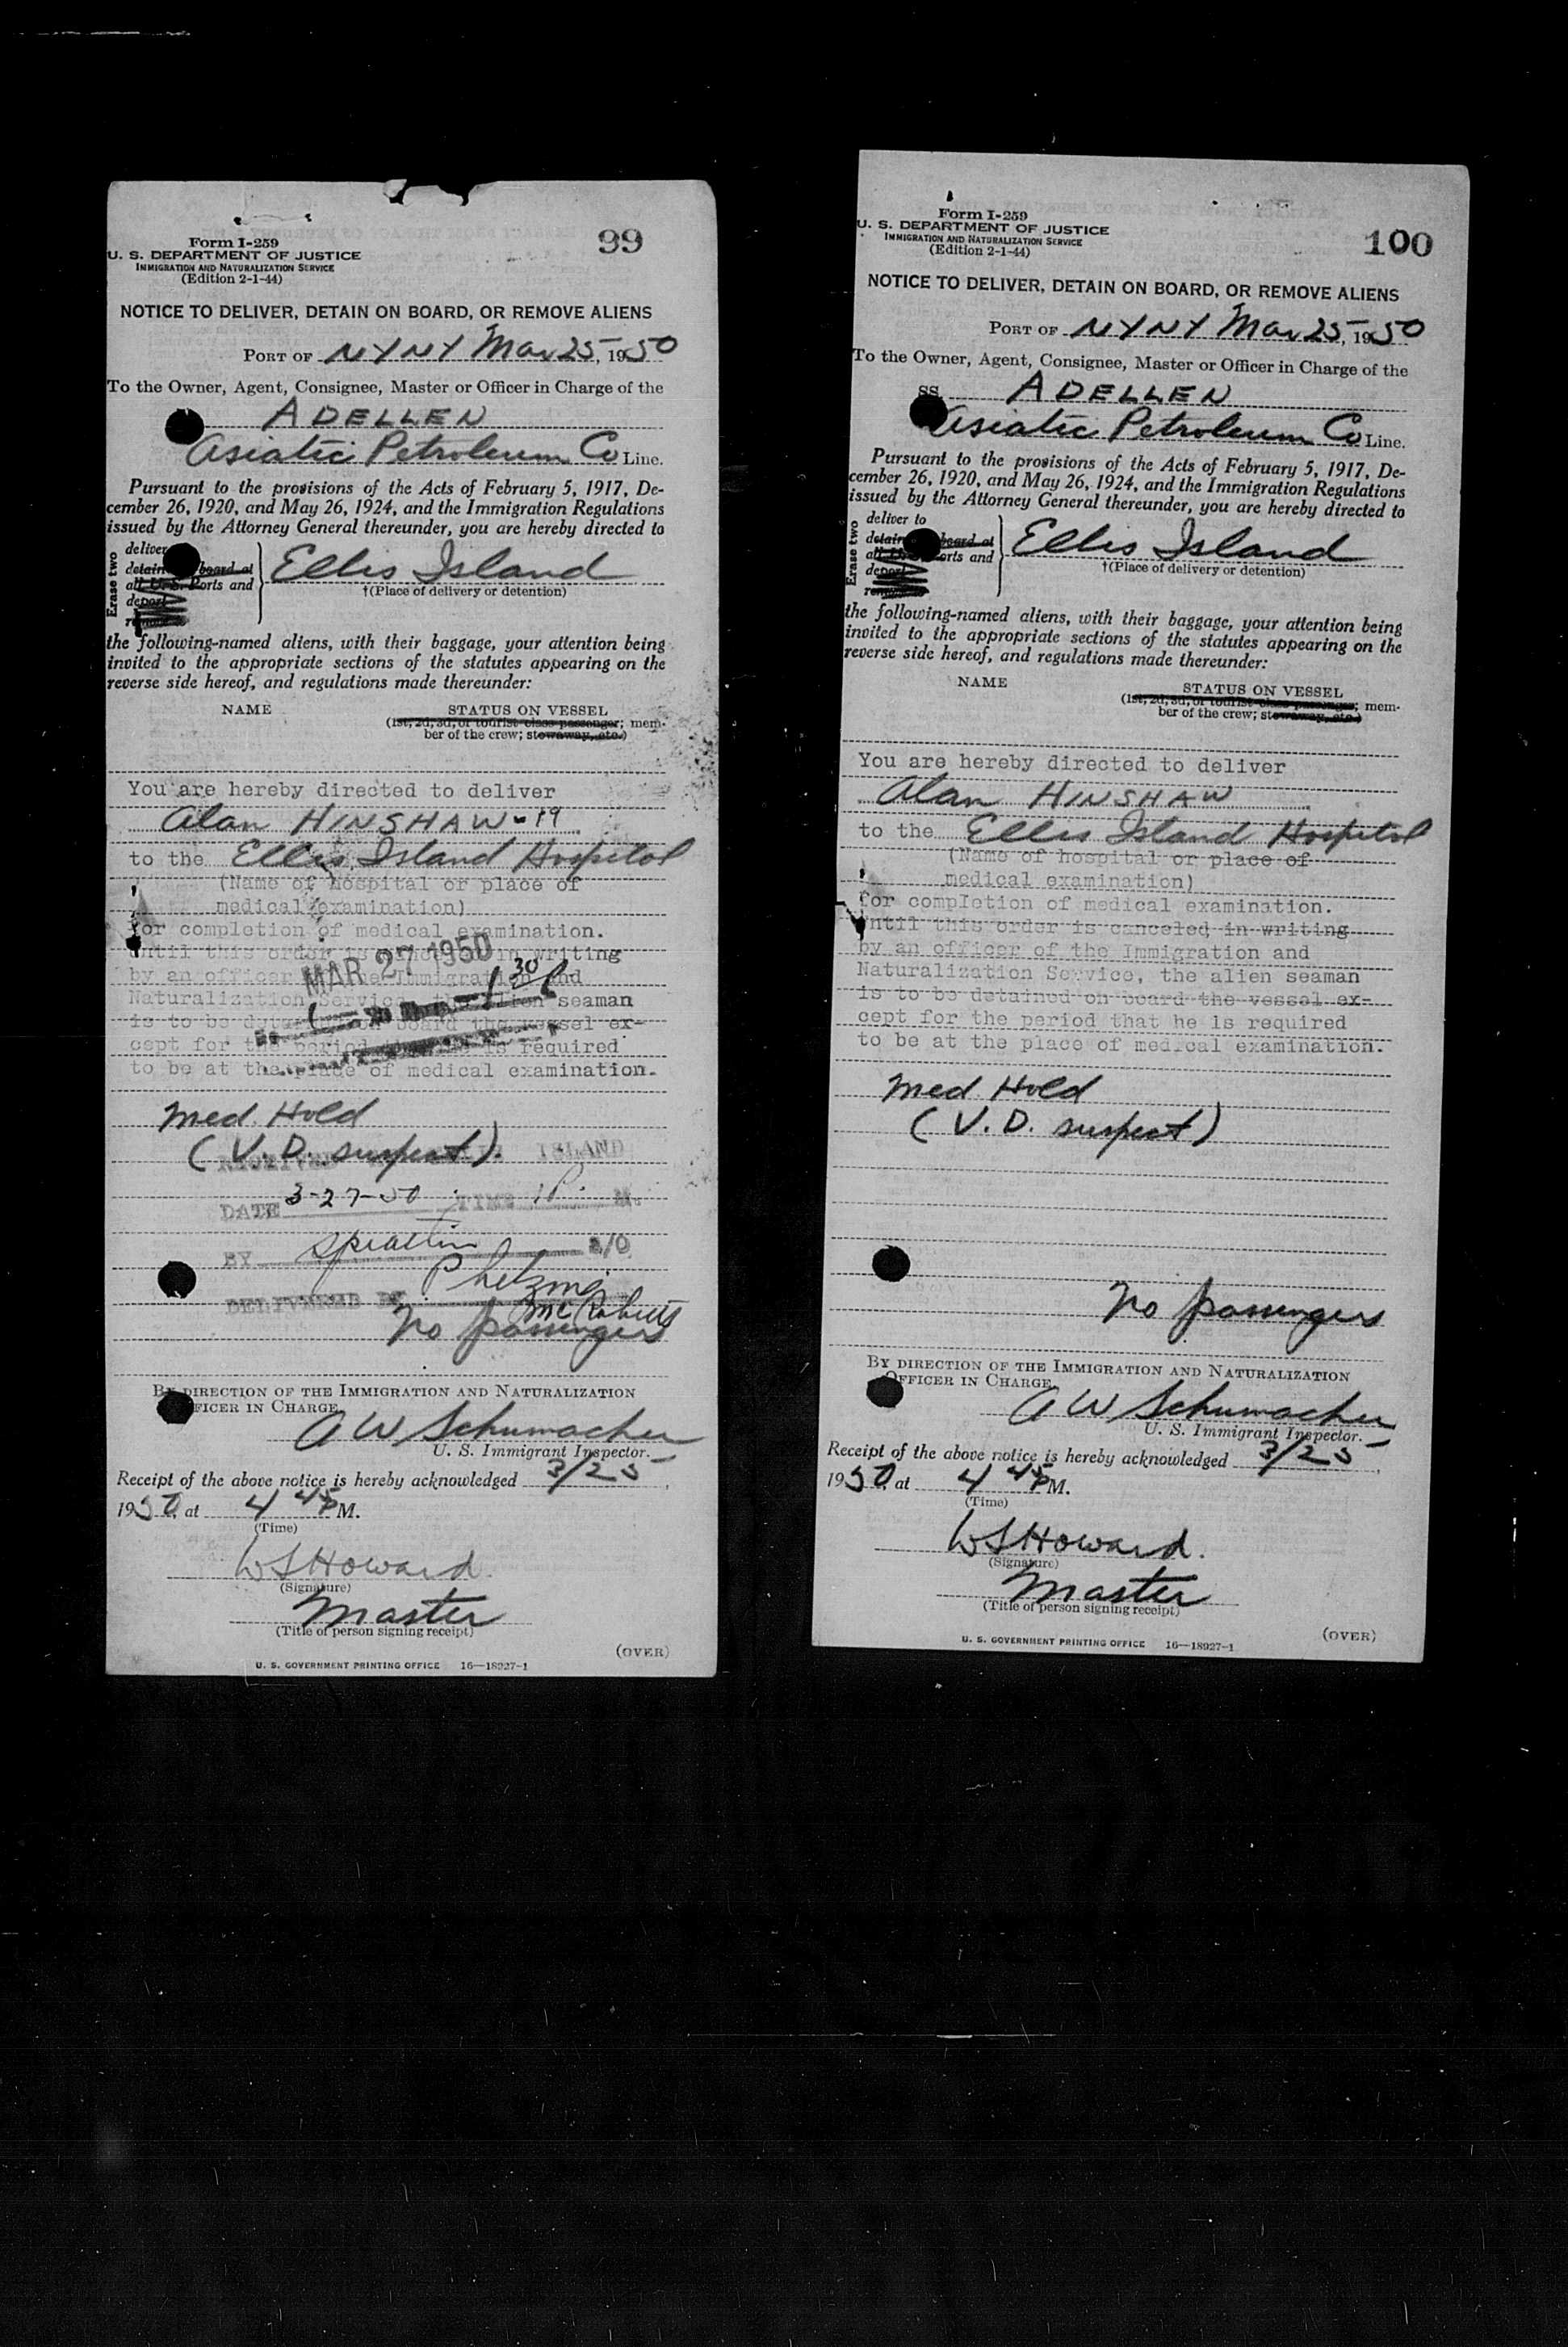 99
Form I-259
U. S. DEPARTMENT OF JUSTICE
IMMIGRATION AND NATURALIZATION SERVICE
(Edition 2-1-44)
NOTICE TO DELIVER, DETAIN ON BOARD, OR REMOVE ALIENS
PORT OF NYNY Mar 25, 1950
To the Owner, Agent, Consignee, Master or Officer in Charge of the
ADELLEN
Asiatic Petroleum Co Line.
Pursuant to the provisions of the Acts of February 5, 1917, De-
cember 26, 1920, and May 26, 1924, and the Immigration Regulations
issued by the Attorney General thereunder, you are hereby directed to
Erase two
deliver
detain board at
all U. S. Ports and
deport
Ellis Island
†(Place of delivery or detention)
the following-named aliens, with their baggage, your attention being
invited to the appropriate sections of the statutes appearing on the
reverse side hereof, and regulations made thereunder:
NAME STATUS ON VESSEL
(1st, 2d, 3d, or tourist class passenger; mem-
ber of the crew; stowaway, etc.)
You are hereby directed to deliver
Alan HINSHAW - 19
to the Ellis Island Hospital
(Name of hospital or place of
medical examination)
for completion of medical examination.
Until this order is in writing
MAR 27 1950
by an officer the Immigration and
1 30
Naturalization Service, the alien seaman
is to be detained on board the vessel ex-
cept for the period is required
to be at the place of medical examination.
Med. Hold
(V. D. suspect).
ISLAND
DATE 3-27-50 TIME 1P. M.
BY
DELIVERED BY
McRoberts
No passengers
BY DIRECTION OF THE IMMIGRATION AND NATURALIZATION
OFFICER IN CHARGE.
A W Schumacher
U. S. Immigrant Inspector.
Receipt of the above notice is hereby acknowledged 3/25,
1950 at 4 45 PM.
(Time)
WSHoward.
(Signature)
Master
(Title of person signing receipt)
(OVER)
U. S. GOVERNMENT PRINTING OFFICE 16—18927-1
100
Form I-259
U. S. DEPARTMENT OF JUSTICE
IMMIGRATION AND NATURALIZATION SERVICE
(Edition 2-1-44)
NOTICE TO DELIVER, DETAIN ON BOARD, OR REMOVE ALIENS
PORT OF NYNY Mar 25, 1950
To the Owner, Agent, Consignee, Master or Officer in Charge of the
SS. ADELLEN
Asiatic Petroleum Co Line.
Pursuant to the provisions of the Acts of February 5, 1917, De-
cember 26, 1920, and May 26, 1924, and the Immigration Regulations
issued by the Attorney General thereunder, you are hereby directed to
Erase two
deliver to
detain board at
all U. S. Ports and
deport
Ellis Island
†(Place of delivery or detention)
the following-named aliens, with their baggage, your attention being
invited to the appropriate sections of the statutes appearing on the
reverse side hereof, and regulations made thereunder:
NAME STATUS ON VESSEL
(1st, 2d, 3d, or tourist class passenger; mem-
ber of the crew; stowaway, etc.)
You are hereby directed to deliver
Alan HINSHAW
to the Ellis Island Hospital
(Name of hospital or place of
medical examination)
for completion of medical examination.
Until this order is canceled in writing
by an officer of the Immigration and
Naturalization Service, the alien seaman
is to be detained on board the vessel ex-
cept for the period that he is required
to be at the place of medical examination.
Med. Hold
(V. D. suspect)
No passengers
BY DIRECTION OF THE IMMIGRATION AND NATURALIZATION
OFFICER IN CHARGE.
A W Schumacher
U. S. Immigrant Inspector.
Receipt of the above notice is hereby acknowledged 3/25,
1950 at 4 45 PM.
(Time)
WSHoward.
(Signature)
Master
(Title of person signing receipt)
(OVER)
U. S. GOVERNMENT PRINTING OFFICE 16—18927-1